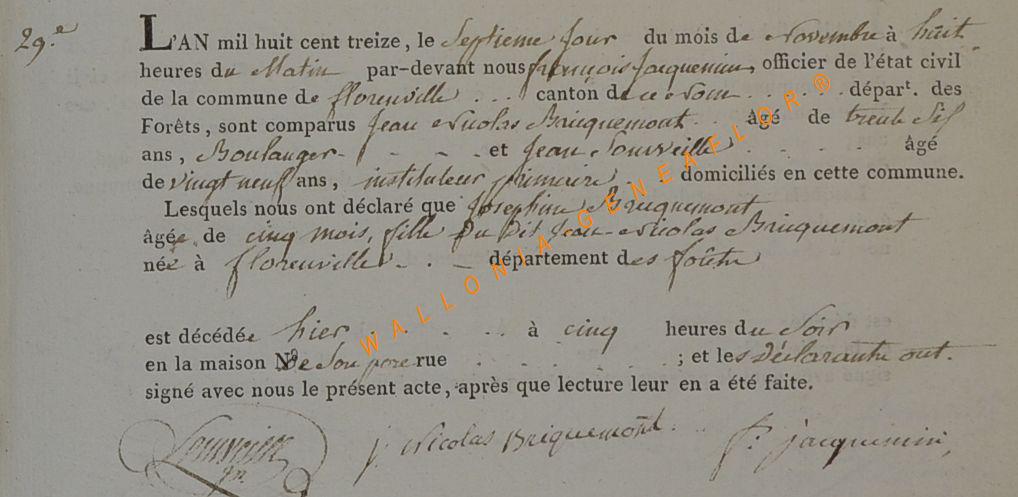 29.e
L'AN mil huit cent treize, le Septieme Jour du mois de Novembre à huit
heures du Matin par-devant nous françois Jacquemin, officier de l'état civil
de la commune de florenville . . . canton de ce nom . . . . . départ. des
Forêts, sont comparus Jean Nicolas Bricquemont âgé de trente Six
ans, Boulanger - - - - et Jean . . . . âgé
de vingt neuf ans, instituteur primaire . domiciliés en cette commune.
Lesquels nous ont déclaré que Josephine Bricquemont
âgée de cinq mois, fille Du Dit Jean-Nicolas Bricquemont
née à florenville - . - département des forêts
est décédée hier . . . . . à cinq heures du Soir
en la maison No de Son pere rue . . . . . . ; et les Déclarants ont
signé avec nous le présent acte, après que lecture leur en a été faite.
J Nicolas Briquemont . . f. jacquemin,
WALLONIA GENEAFLOR ®